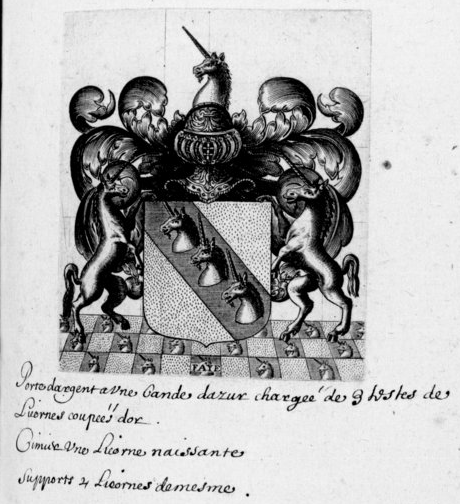 Porte dargent a Vne bande dazur chargeé de 3 testes de
Licornes coupeés dor .
Cimier Vne Licorne naissante
Supports 2 Licornes de mesme .